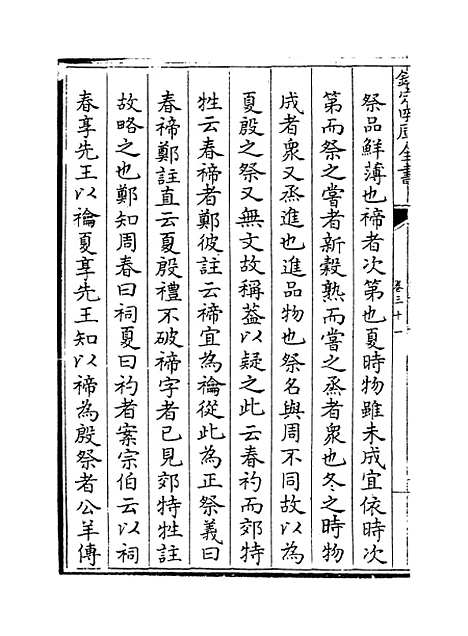 欽定四庫全書
卷三十一
祭品鮮薄也禘者次第也夏時物雖未成宜依時次
第而祭之嘗者新穀熟而嘗之烝者衆也冬之時物
成者衆又烝進也進品物也祭名與周不同故以為
夏殷之祭又無文故稱葢以疑之此云春礿而郊特
牲云春禘者鄭彼註云禘宜為禴從此為正祭義曰
春禘鄭註直云夏殷禮不破禘字者已見郊特牲註
故略之也鄭知周春曰祠夏曰礿者案宗伯云以祠
春享先王以禴夏享先王知以禘為殷祭者公羊傳